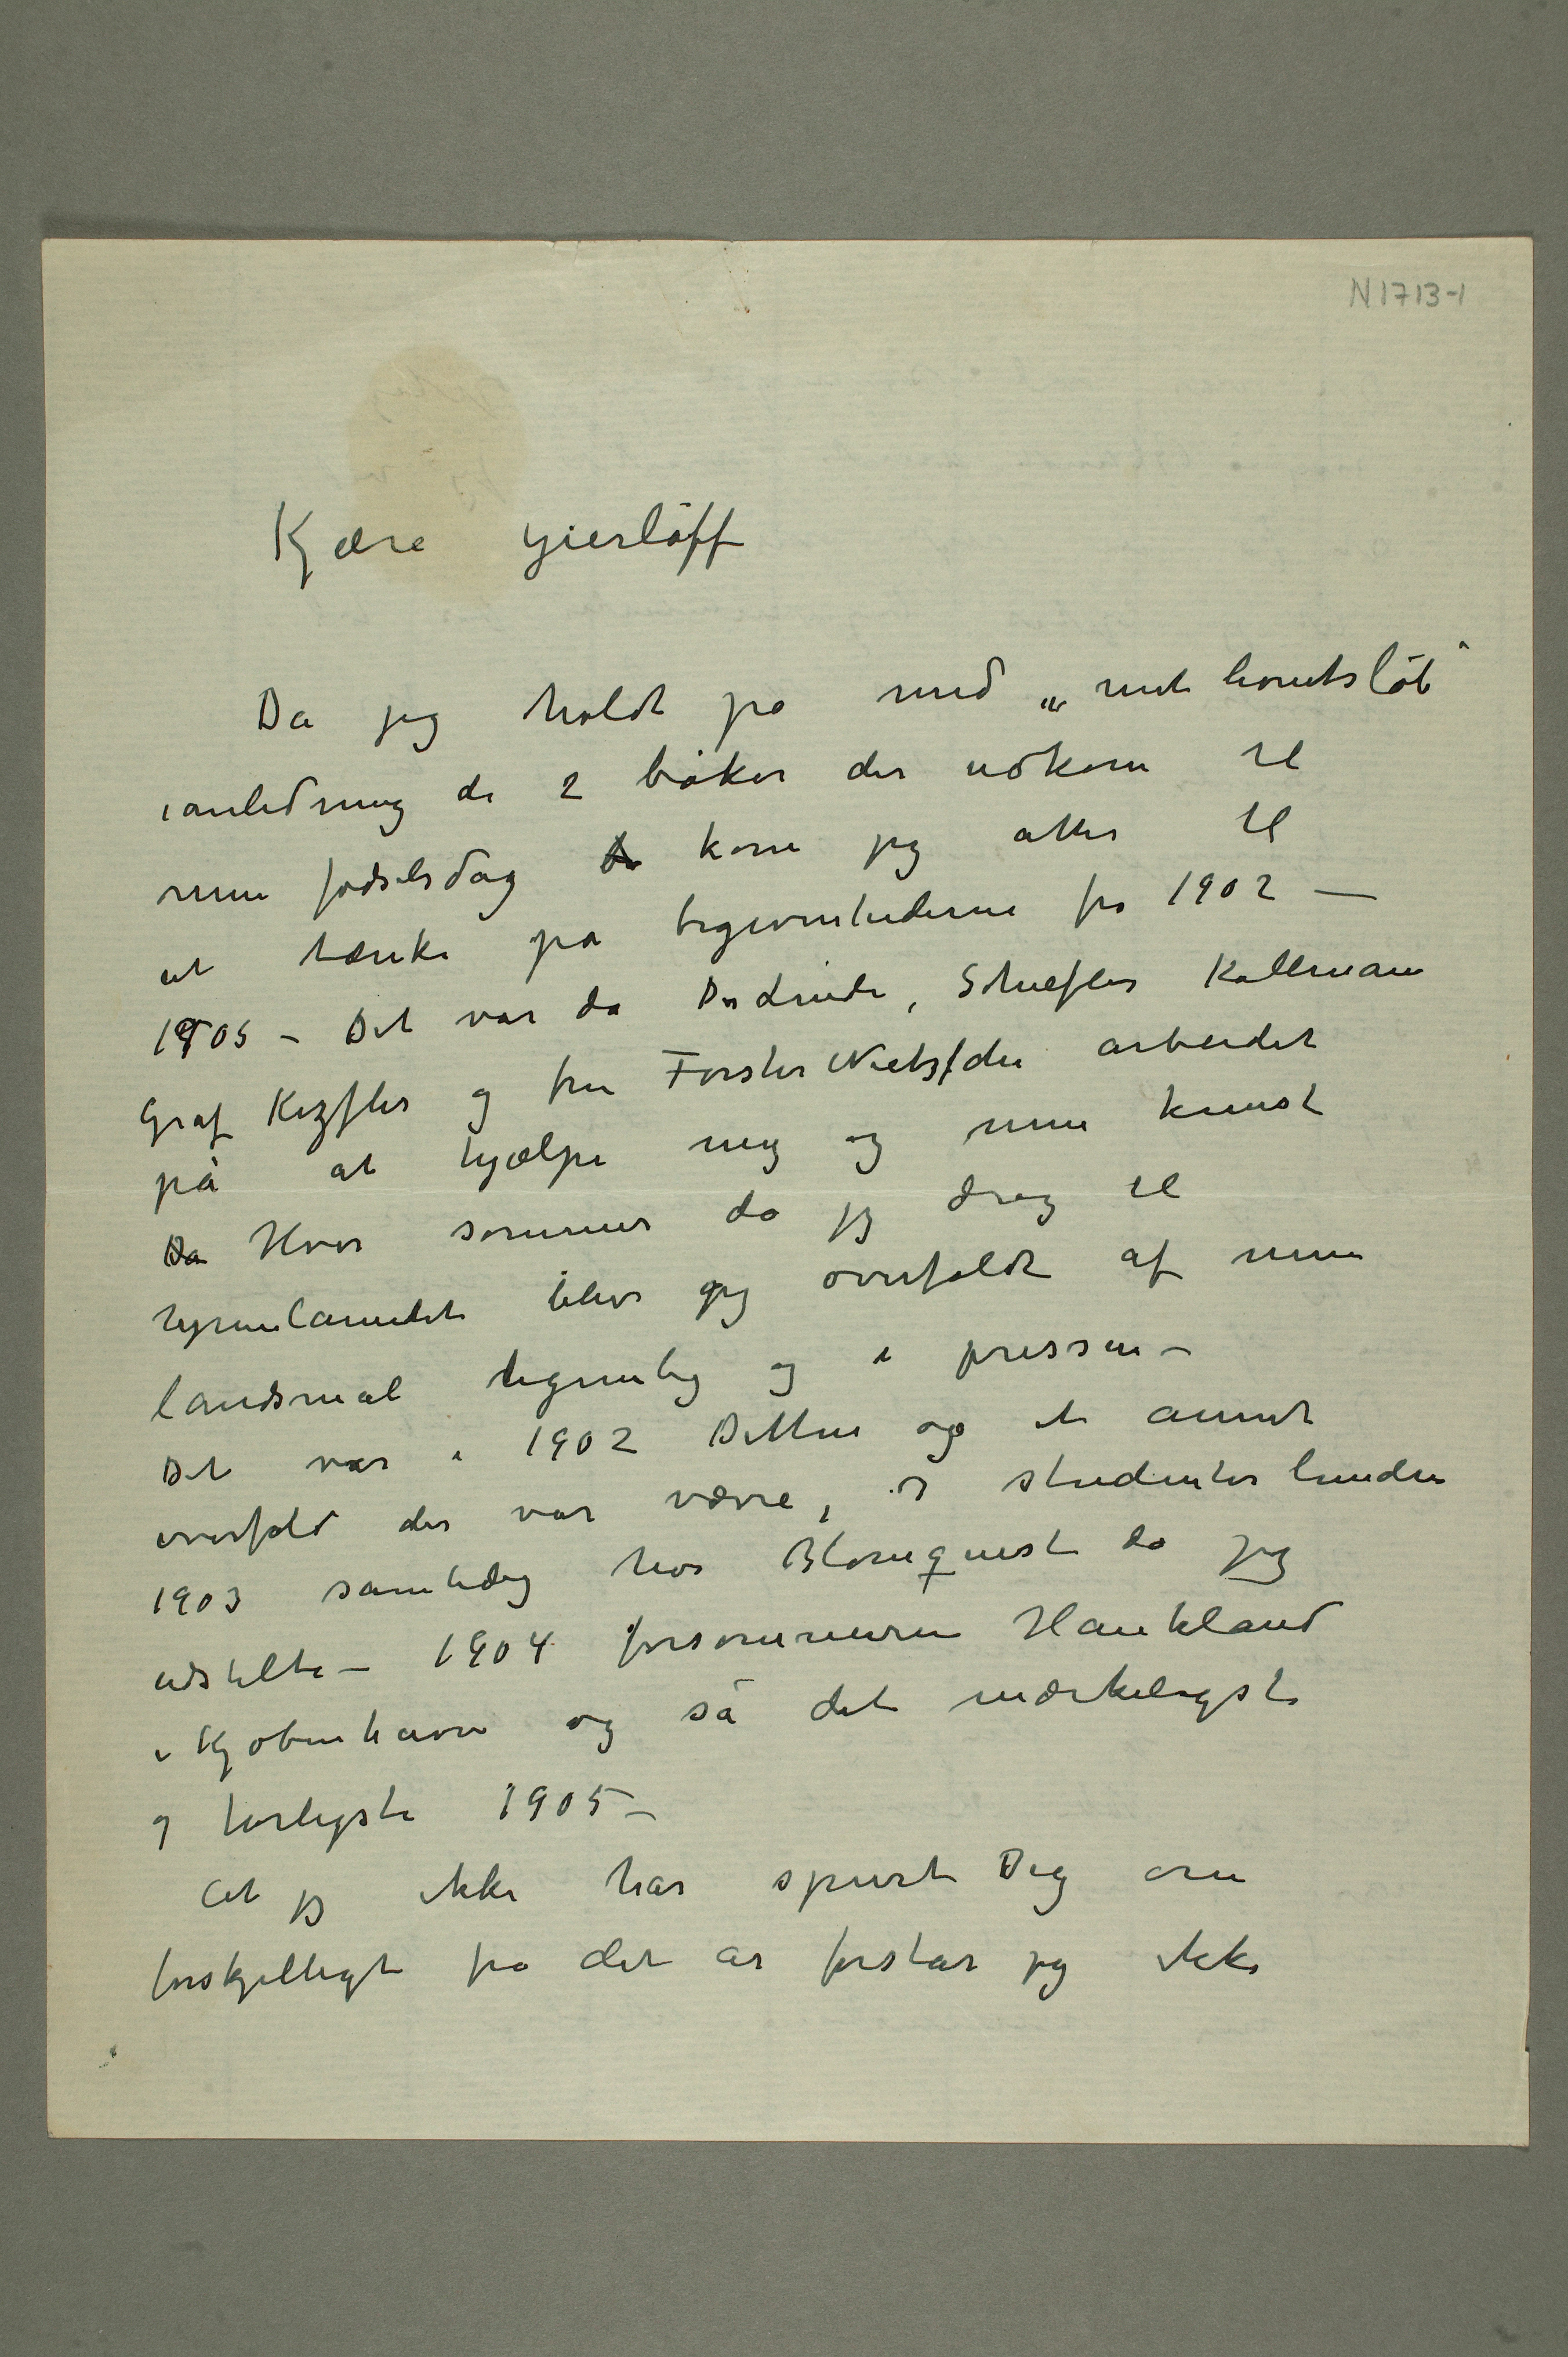 N 1713-1
Kjære Gierløff
Da jeg holdt på med „mit livnetsløb"
i anledning de 2 bøker der udkom til
min fødselsdag kom jeg atter til
at tænke på begivenhederne fra 1902 –
1905 – Det var da Dr Linde, Schiefler Kollmann
Graf Kezfler og fru Førster Nietzsche arbeidet
på at hjælpe mig og min kunst
Da Hver sommer da jeg drog til
hjemlandet blev jeg overfaldt af min
landsmæl legemlig og i pressen –
Det var i 1902 Ditten og et annet
overfald der var værre, I studenterlunden
1903 samtidig hos Blomquist da jeg
udstilte – 1904 forsommeren Haukland
i Kjøbenhavn og så det mærkeligste
og farligste 1905 –
At jeg ikke har spurt Dig om
forskjelligt fra det år forstår jeg ikke